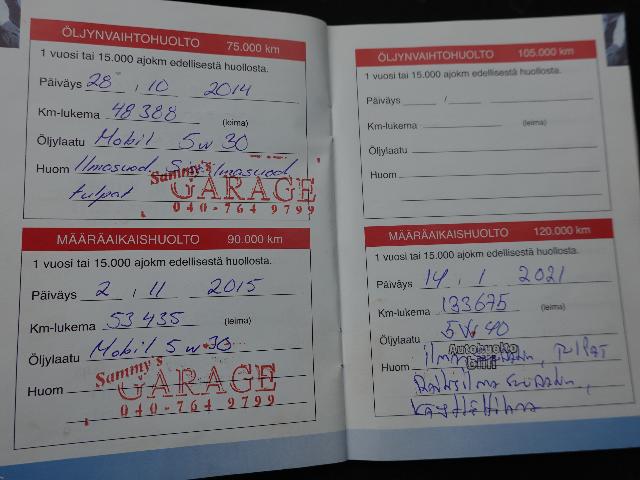 ÖLJYNVAIHTOHUOLTO 75.000 km
1 vuosi tai 15.000 ajokm edellisestä huollosta.
Päiväys 28 / 10 2014
Km-lukema 48388 (leima)
Öljylaatu Mobil 5w30
Huom Ilmasuod. Sisäilmasuod
tulpat
Sammy's
GARAGE
040-764 9799
MÄÄRÄAIKAISHUOLTO 90.000 km
1 vuosi tai 15.000 ajokm edellisestä huollosta.
Päiväys 2 / 11 2015
Km-lukema 53435 (leima)
Öljylaatu Mobil 5w30
Huom
Sammy's
GARAGE
040-764 9799
ÖLJYNVAIHTOHUOLTO 105.000 km
1 vuosi tai 15.000 ajokm edellisestä huollosta.
Päiväys /
Km-lukema (leima)
Öljylaatu
Huom
MÄÄRÄAIKAISHUOLTO 120.000 km
1 vuosi tai 15.000 ajokm edellisestä huollosta.
Päiväys 14 / 1 2021
Km-lukema 133675 (leima)
Öljylaatu 5W40
Autohuolto
Huom ilman TULPAT